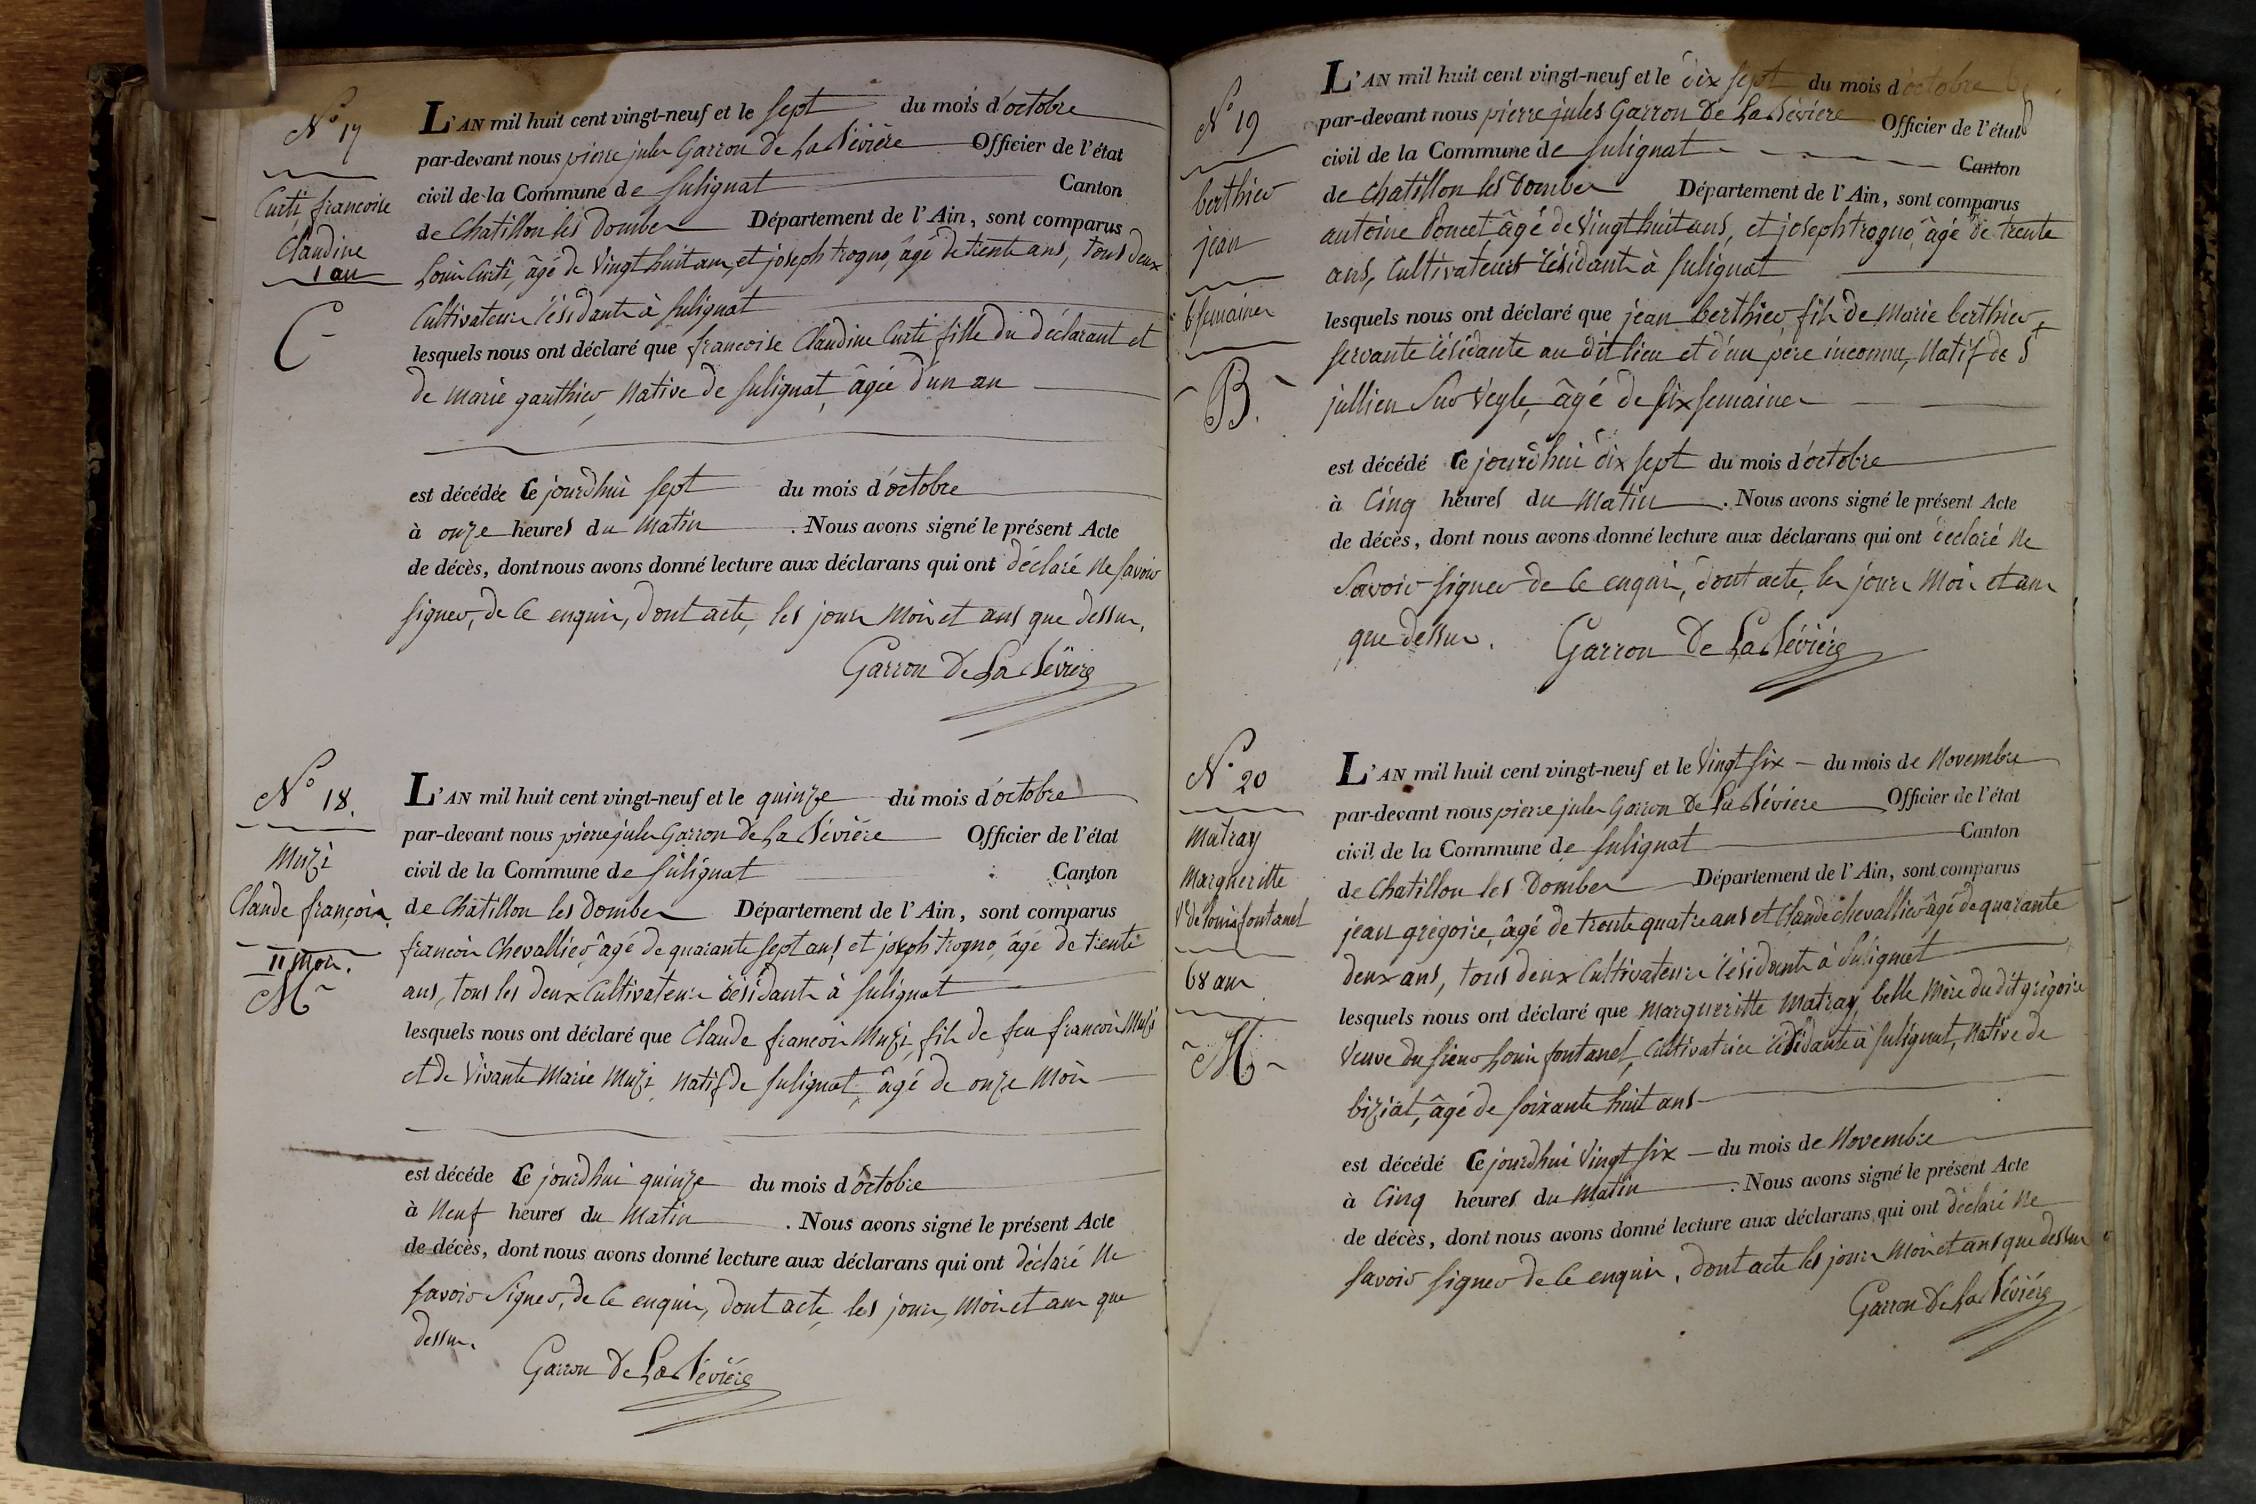 N° 17
Curti francoise
Claudine
1 an
C
L'AN mil huit cent vingt-neuf et le sept du mois d'octobre
par-devant nous pierre jules Garron de La Bévière Officier de l'état
civil de la Commune de Sulignat Canton
de Chatillon les Dombes Département de l'Ain, sont comparus
Louis Curti, âgé de vingt huit ans, et joseph trogno, âgé de trente ans, tous deux
Cultivateurs résidants à Sulignat
lesquels nous ont déclaré que francoise Claudine Curti fille du déclarant et
de marie gauthier, Native de Sulignat, âgée d'un an
est décédée Ce jourdhui sept du mois d'octobre
à onze heures du Matin. Nous avons signé le présent Acte
de décès, dont nous avons donné lecture aux déclarans qui ont déclaré Ne Savoir
signer, de Ce enquis, dont acte, les jour Mois et ans que dessus,
Garron De La Bévière
N° 18.
Muzi
Claude françois
11 Mois.
M
L'AN mil huit cent vingt-neuf et le quinze du mois d'octobre
par-devant nous pierre jules Garron De La Bévière Officier de l'état
civil de la Commune de Sulignat Canton
de Chatillon les Dombes Département de l'Ain, sont comparus
francois Chevallier âgé de quarante sept ans, et joseph trogno, âgé de trente
ans, tous les deux Cultivateurs résidants à Sulignat
lesquels nous ont déclaré que Claude francois Muzi, fils de feu francois Muzi
et de Vivante Marie Muzi, Natif de Sulignat, âgé de onze Mois
est décédé Ce jourdhui quinze du mois d'octobre
à Neuf heures du Matin. Nous avons signé le présent Acte
de décès, dont nous avons donné lecture aux déclarans qui ont déclaré Ne
Savoir Signer, de Ce enquis, dont acte, les jour, Mois et ans que
dessus.
Garron De La Bévière
N° 19
berthier
jean
6 Semaines
B.
L'AN mil huit cent vingt-neuf et le dix sept du mois d'octobre
par-devant nous pierre jules Garron De La Bévière Officier de l'état
civil de la Commune de Sulignat Canton
de Chatillon les Dombes Département de l'Ain, sont comparus
antoine Poncet âgé de Vingt huit ans, et joseph trogno, âgé de trente
ans, Cultivateurs résidants à Sulignat
lesquels nous ont déclaré que jean berthier, fils de Marie berthier
Servante résidante au dit lieu et d'un père inconnu, Natif de St
jullien Sur Veyle, âgé de Six Semaines
est décédé Ce jourdhui dix sept du mois d'octobre
à Cinq heures du Matin. Nous avons signé le présent Acte
de décès, dont nous avons donné lecture aux déclarans qui ont déclaré Ne
Savoir signer de Ce enquis, dont acte, les jour Mois et ans
que dessus. Garron De La Bévière
N° 20
Matray
Margueritte
Ve de Louis fontanel
68 ans
M
L'AN mil huit cent vingt-neuf et le Vingt Six du mois de Novembre
par-devant nous pierre jules Garron De La Bévière Officier de l'état
civil de la Commune de Sulignat Canton
de Chatillon les Dombes Département de l'Ain, sont comparus
jean grégoire, âgé de trente quatre ans et Claude Chevallier âgé de quarante
deux ans, tous deux Cultivateurs résidants à Sulignat
lesquels nous ont déclaré que Margueritte Matray, belle Mère du dit grégoire
Veuve du Sieur Louis fontanel, Cultivatrice résidante à Sulignat, Native de
biziat, âgé de Soixante huit ans
est décédé Ce jourdhui Vingt Six du mois de Novembre
à Cinq heures du Matin. Nous avons signé le présent Acte
de décès, dont nous avons donné lecture aux déclarans qui ont déclaré Ne
Savoir signer de Ce enquis, dont acte les jour Mois et ans que dessus
Garron De La Bévière